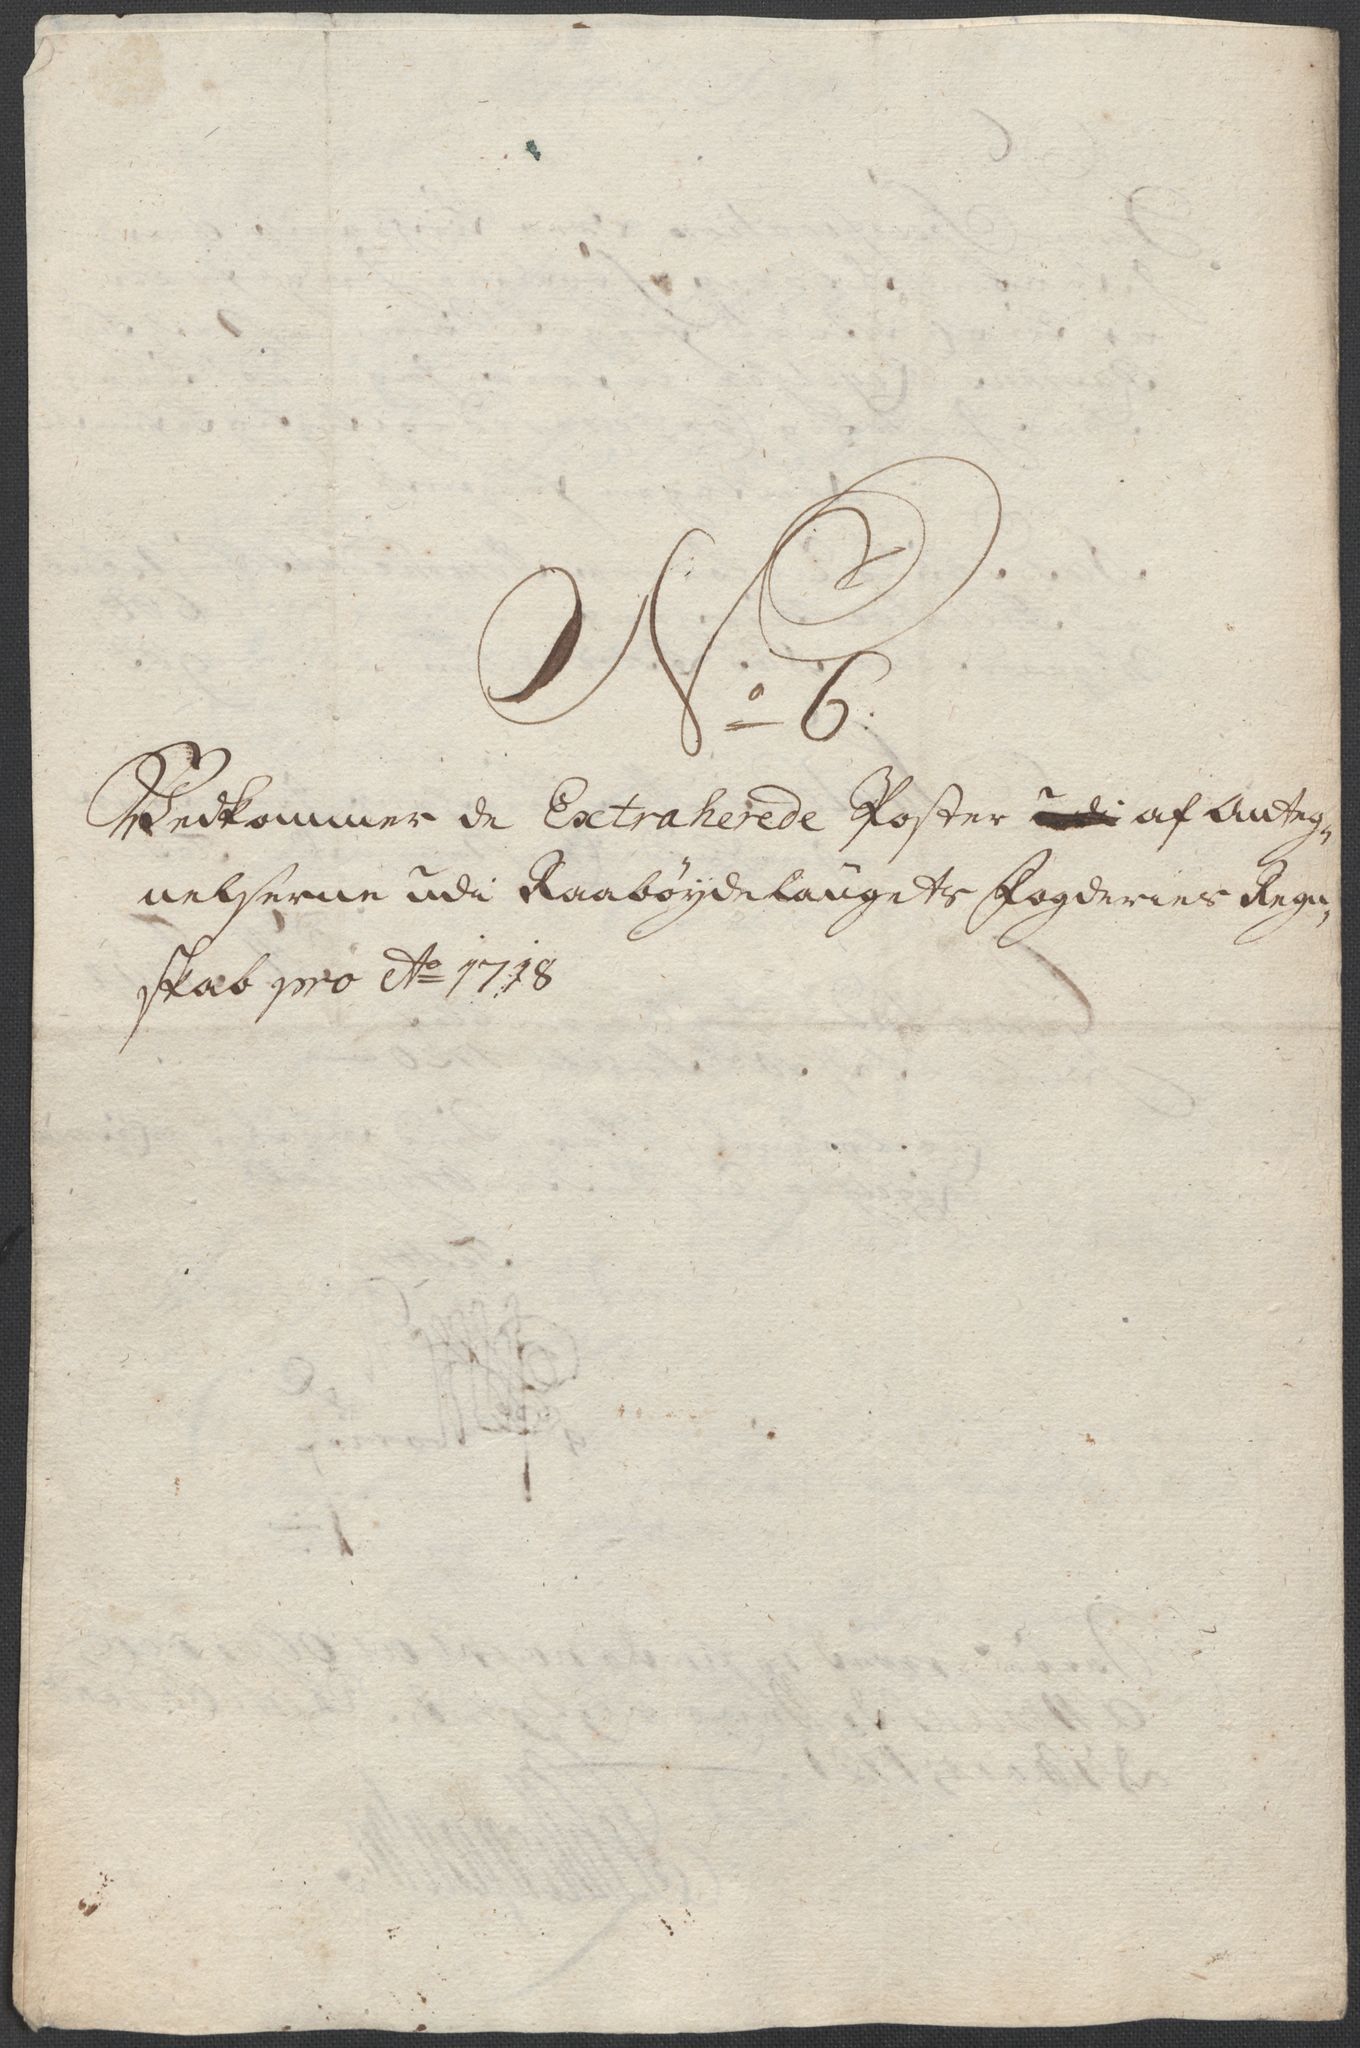 No 6.
Vedkommer de Extraherede Poster udi af Anteg-
nelserne udi Raabøydelaugets Fogderies Regn-
skab pro Ao 1718